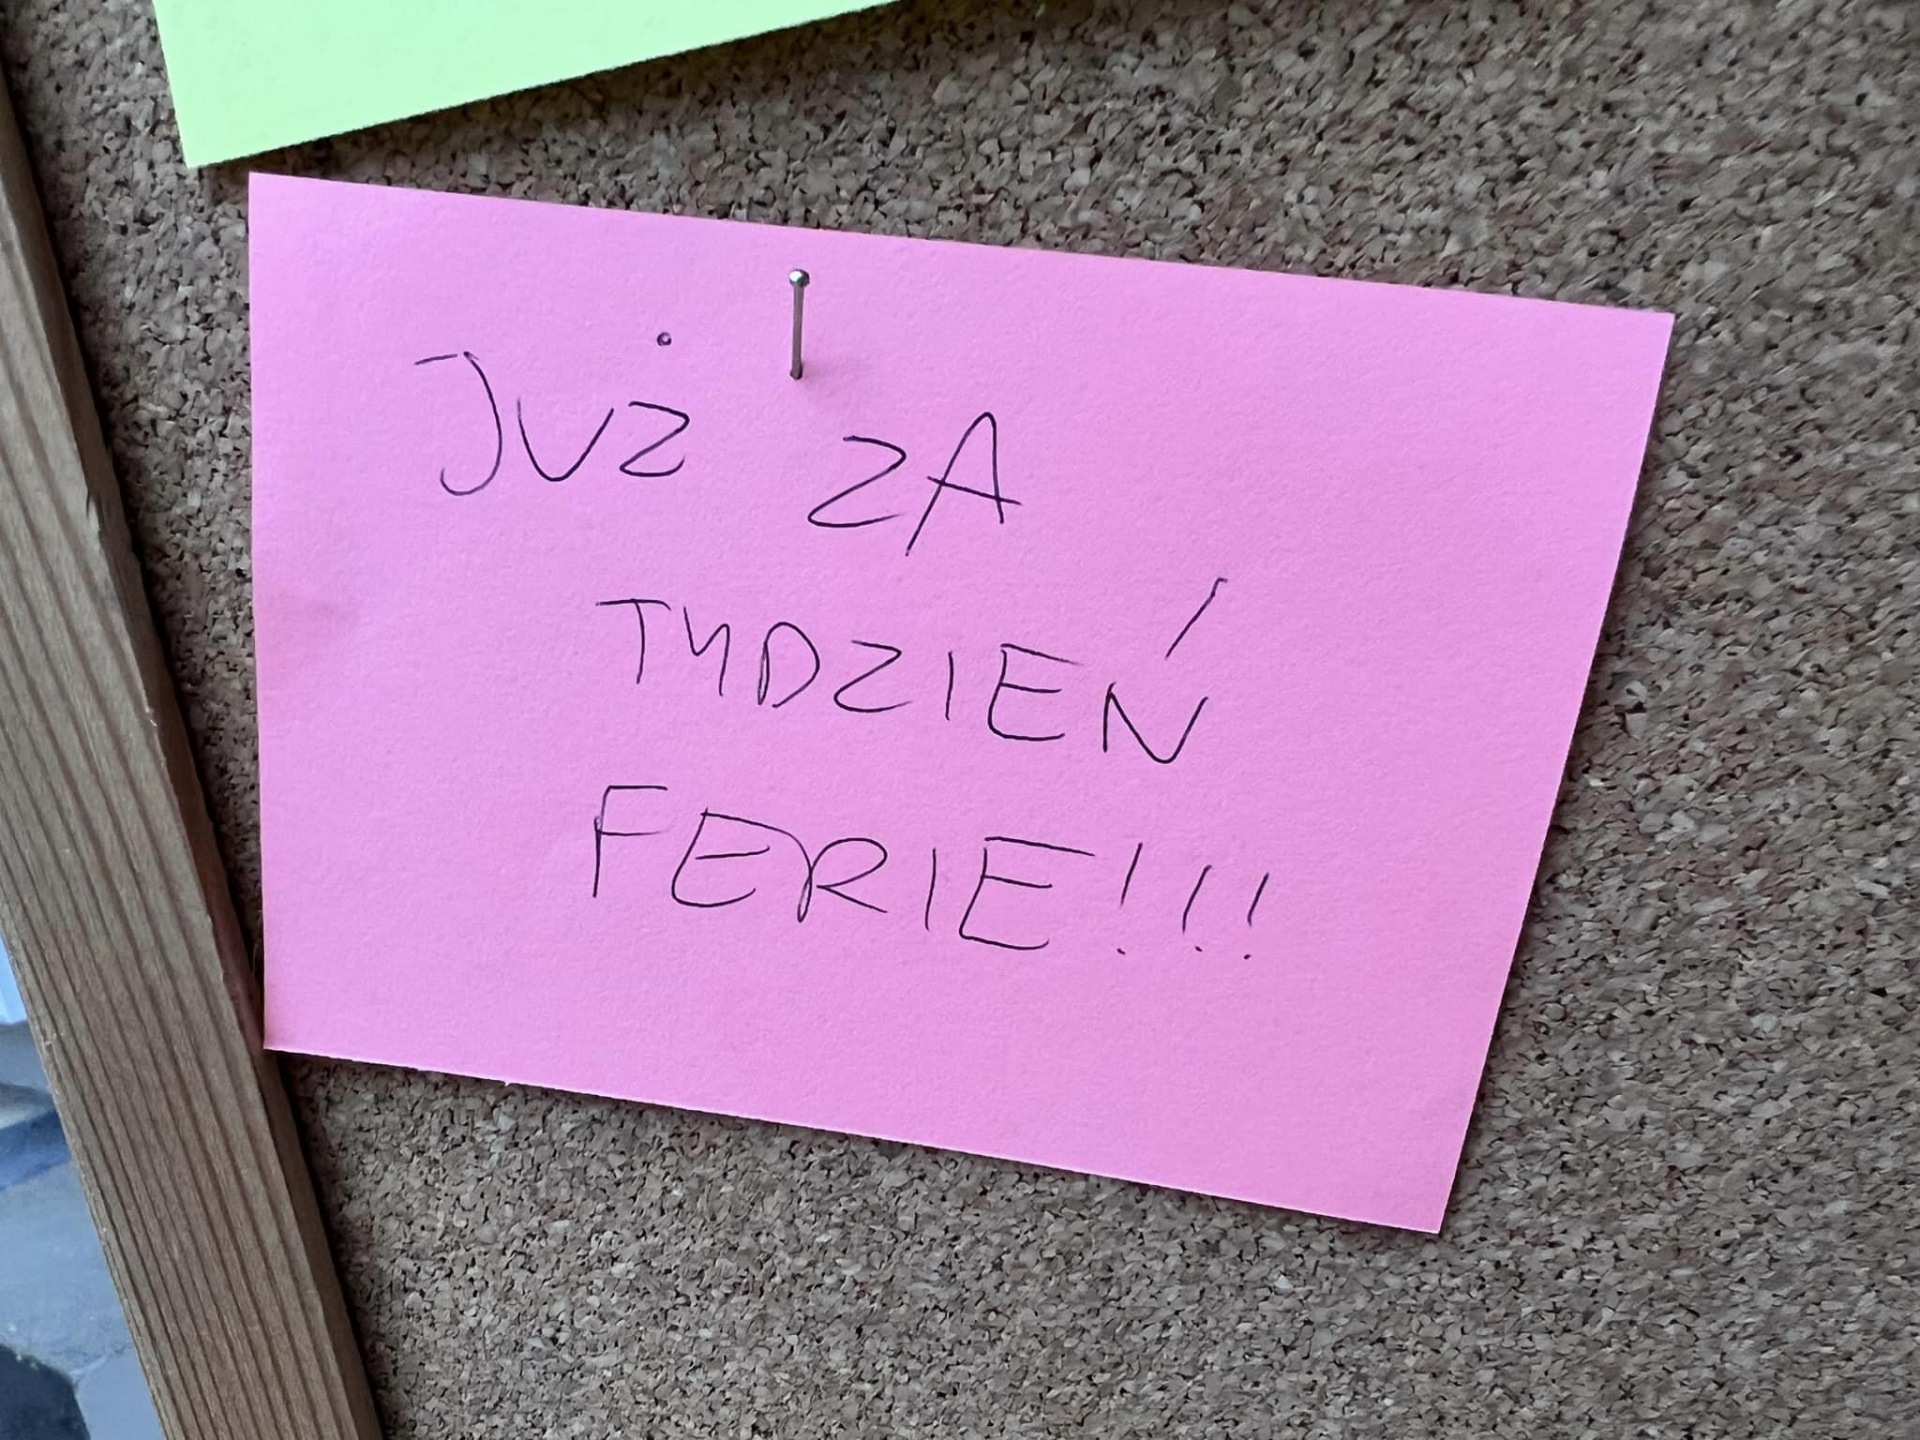 JUŻ ZA
TYDZIEŃ
FERIE!!!